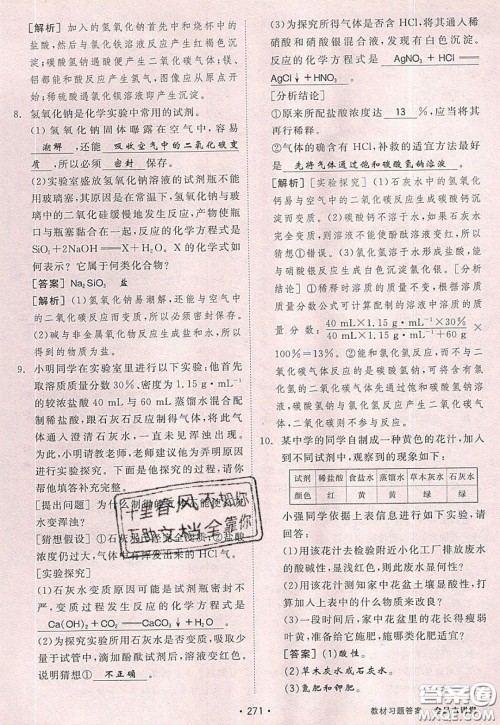 [解析] 加入的氢氧化钠首先中和烧杯中的
盐酸,然后与氯化铁溶液反应产生红褐色沉
淀;碳酸氢钠遇酸便产生二氧化碳气体;镁、
铝都能和酸反应产生氢气,图像应从原点开
始;稀硫酸遇氯化钡溶液立即产生白色沉淀。
8. 氢氧化钠是化学实验中常用的试剂。
(1)氢氧化钠固体曝露在空气中,容易
潮解,还能 吸收空气中的二氧化碳变
质,所以必须 密封 保存。
(2)实验室盛放氢氧化钠溶液的试剂瓶不能
用玻璃塞,其原因是在常温下,氢氧化钠与玻
璃中的二氧化硅缓慢地发生反应,产物使瓶
口与瓶塞黏合在一起,反应的化学方程式是
SiO₂+2NaOH══X+H₂O。X 的化学式如
何表示?它属于何类化合物?
[答案] Na₂SiO₃ 盐
[解析] (1)氢氧化钠易潮解,还能与空气中
的二氧化碳反应而变质,所以必须密封保存。
(2)碱与非金属氧化物反应生成盐和水,所以
得到的物质为盐。
9. 小明同学在实验室里进行以下实验:他首先
取溶质质量分数30%、密度为1.15 g·mL⁻¹
的较浓盐酸 40 mL 与 60 mL 蒸馏水混合配
制稀盐酸,跟石灰石反应制得气体,将此气
体通入澄清石灰水,一直未见浑浊出现。
小明请教老师,老师建议他对于为什么不
浑浊开展探究。下面是小明的探究过程,请
帮他填答补充完整。
[提出问题] 为什么制备的
水变浑浊?
浓度仍过大,气体中有挥发出来的 HCl 气体。
[实验探究]
(1)石灰水变质原因可能是试剂瓶密封不
严,变质过程发生反应的化学方程式是
Ca(OH)₂+CO₂══CaCO₃↓+H₂O
(2)为探究实验所用石灰水是否变质,吸取少
量于试管中,滴加酚酞试剂后,观察到溶液变
红。则说明猜想① 不正确 。
(3)为探究所得气体是否含有 HCl,将其通入稀
硝酸和硝酸银混合液,发现有白色沉淀。
反应的化学方程式是 AgNO₃+HCl══
AgCl↓+HNO₃ 。
[分析结论]
①原来所配盐酸浓度达 13 %,应当将其
再行稀释。
②气体内含有 HCl,补救的适宜方法最好
是 先将气体通过饱和碳酸氢钠溶液 。
[解析] [实验探究] (1)石灰水中的氢氧化
钙易与空气中的二氧化碳反应生成碳酸钙
沉淀而变质。(2)碳酸钙不溶于水,如果石灰
水完全变质,则溶液不能使酚酞变红,所以
猜想①错误。(3)氯化氢溶于水形成盐酸,能
与硝酸银反应生成白色沉淀氯化银。[分析
结论] ①根据溶液中溶质质量分数、溶液质
量分数公式可计算配制的溶液中溶质的质
量分数:40 mL×1.15 g·mL⁻¹×30%/40 mL×1.15 g·mL⁻¹+60 g×
100%≈13%。②能和氯化氢气体反应,而不
与二氧化碳反应的最适宜物质为饱和碳酸
氢钠溶液,使气体通过饱和碳酸氢钠溶液,
碳酸氢钠与氯化氢反应产生二氧化碳气
体,而二氧化碳则不参与反应。
10. 某中学的同学自制成一种黄色的花汁,加入
到不同试剂中,观察到的现象如下:
试剂 稀盐酸 食盐水 蒸馏水 草木灰水 石灰水
颜色 红 黄 黄 绿 绿
小强同学依据上表信息进行如下实验,请
回答:
(1)用该花汁去检验附近小化工厂排放的废
水,显现红色,则此废水显何性?
(2)用该花汁测知家中花盆土壤显酸性,打
算加入上表中的什么物质来改良?
(3)小强同学发现家中花盆里的花长得瘦弱
且叶黄,则要施用哪类氮肥、施哪类化肥适宜?
[答案] (1)酸性。
(2)草木灰水或石灰水。
(3)氮肥和钾肥。
千里春风不如你
互助文档全靠你
· 271 ·
教材习题答案